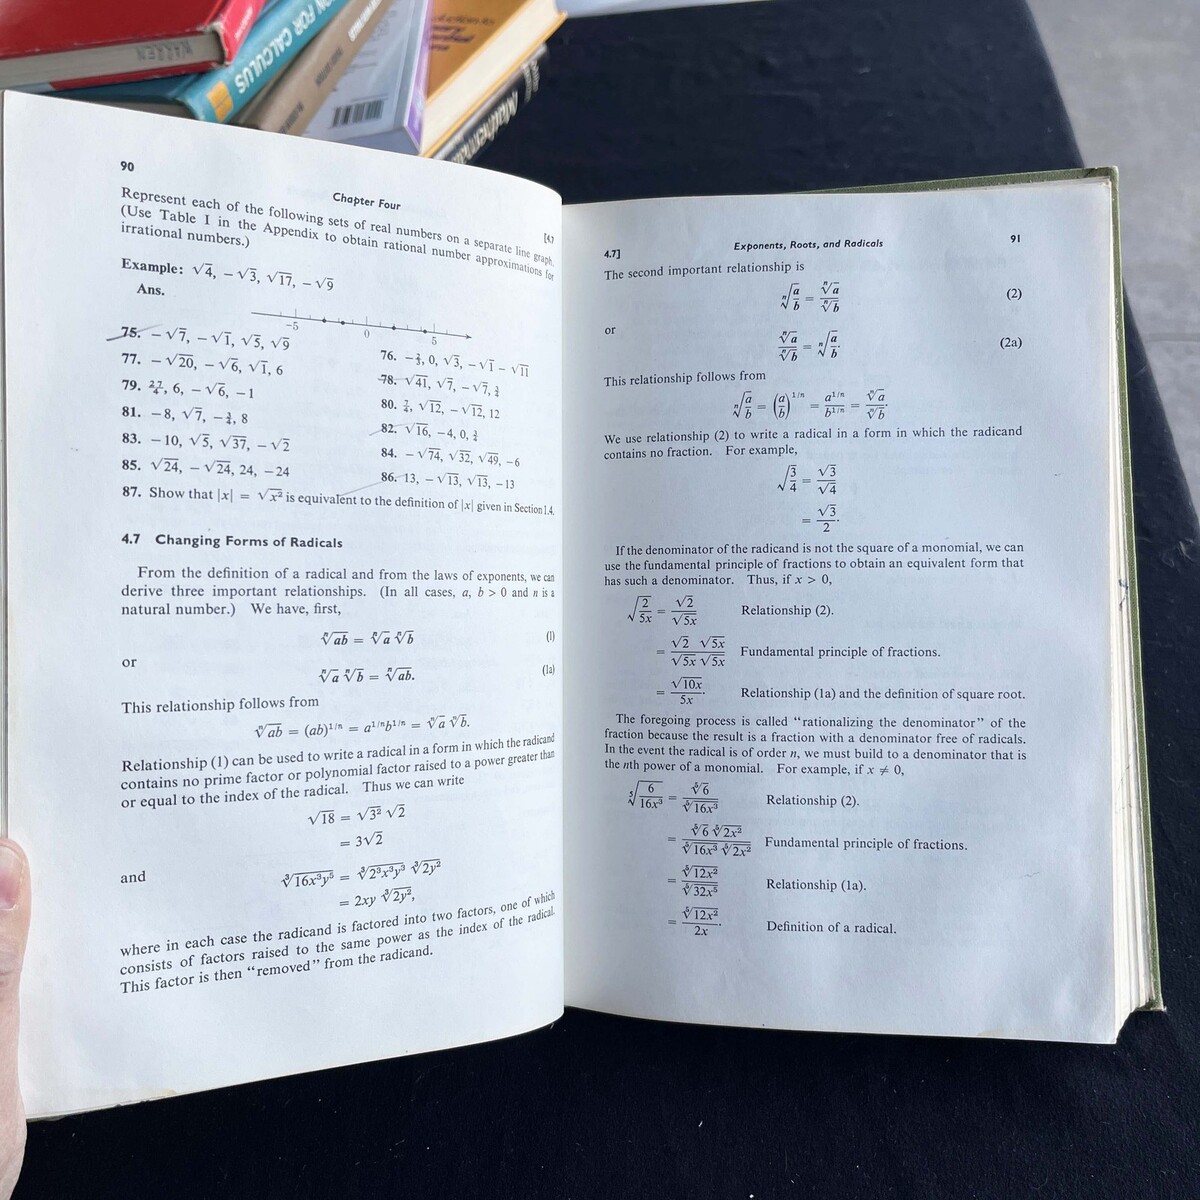 WALLEN
ON FOR CALCULUS
Mathem
90
Chapter Four
[4.7
Represent each of the following sets of real numbers on a separate line graph.
(Use Table I in the Appendix to obtain rational number approximations for
irrational numbers.)
Example: √4, −√3, √17, −√9
Ans.
−5 0 5
75. −√7, −√1, √5, √9
76. −¾, 0, √3, −√1 − √11
77. −√20, −√6, √1, 6
78. √41, √7, −√7, ¾
79. 6, −√6, −1
80. √12, −√12, 12
81. −8, √7, −¾, 8
82. √16, −4, 0, ¾
83. −10, √5, √37, −√2
84. −√74, √32, √49, −6
85. √24, −√24, 24, −24
86. 13, −√13, √13, −13
87. Show that |x| = √x² is equivalent to the definition of |x| given in Section 1.4.
4.7 Changing Forms of Radicals
From the definition of a radical and from the laws of exponents, we can
derive three important relationships. (In all cases, a, b > 0 and n is a
natural number.) We have, first,
ⁿ√ab = ⁿ√a ⁿ√b (1)
or
ⁿ√a ⁿ√b = ⁿ√ab. (1a)
This relationship follows from
ⁿ√ab = (ab)^1/n = a^1/n b^1/n = ⁿ√a ⁿ√b.
Relationship (1) can be used to write a radical in a form in which the radicand
contains no prime factor or polynomial factor raised to a power greater than
or equal to the index of the radical. Thus we can write
√18 = √3² √2
= 3√2
and
³√16x³y⁵ = ³√2³x³y³ ³√2y²
= 2xy ³√2y²,
where in each case the radicand is factored into two factors, one of which
consists of factors raised to the same power as the index of the radical.
This factor is then “removed” from the radicand.
4.7]
Exponents, Roots, and Radicals
91
The second important relationship is
ⁿ√a/b = ⁿ√a/ⁿ√b (2)
or
ⁿ√a/ⁿ√b = ⁿ√a/b. (2a)
This relationship follows from
ⁿ√a/b = (a/b)^1/n = a^1/n / b^1/n = ⁿ√a/ⁿ√b.
We use relationship (2) to write a radical in a form in which the radicand
contains no fraction. For example,
√3/4 = √3/√4
= √3/2.
If the denominator of the radicand is not the square of a monomial, we can
use the fundamental principle of fractions to obtain an equivalent form that
has such a denominator. Thus, if x > 0,
√2/5x = √2/√5x Relationship (2).
= √2 √5x/√5x √5x Fundamental principle of fractions.
= √10x/5x. Relationship (1a) and the definition of square root.
The foregoing process is called “rationalizing the denominator” of the
fraction because the result is a fraction with a denominator free of radicals.
In the event the radical is of order n, we must build to a denominator that is
the nth power of a monomial. For example, if x ≠ 0,
⁵√6/16x³ = ⁵√6/⁵√16x³ Relationship (2).
= ⁵√6 ⁵√2x²/⁵√16x³ ⁵√2x² Fundamental principle of fractions.
= ⁵√12x²/⁵√32x⁵ Relationship (1a).
= ⁵√12x²/2x. Definition of a radical.